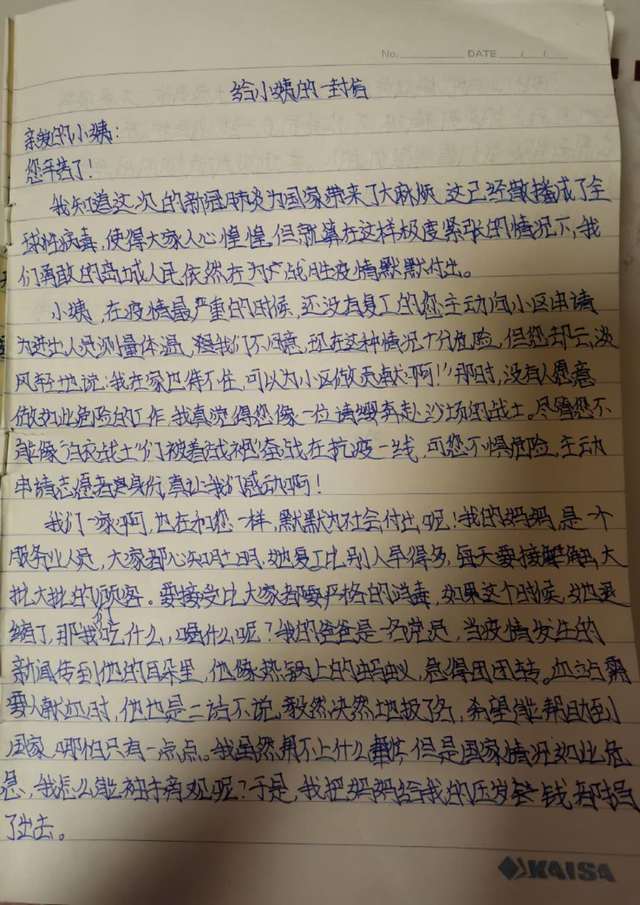 No.
DATE / /
给小姨的一封信
亲爱的小姨：
您辛苦了！
我知道这次的新冠肺炎为国家带来了大麻烦，这已经散播成了全
球性病毒，使得大家人心惶惶，但就算在这样极度紧张的情况下，我
们勇敢的高城人民依然在为了战胜疫情默默付出。
小姨，在疫情最严重的时候，还没有复工的您主动向小区申请
为进出人员测量体温，我们不同意，现在这种情况十分危险，但您却云淡
风轻地说："我在家也待不住，可以为小区做贡献啊！"那时，没有人愿意
做如此危险的工作，我真觉得您像一位请缨奔赴沙场的战士。尽管您不
能像"白衣战士"们披着"战袍"奋战在抗疫一线，可您不惧危险，主动
申请志愿者身份，真让我们感动啊！
我们一家啊，也在和您一样，默默为社会付出呢！我的妈妈，是一个
服务业人员，大家都心知肚明，她复工比别人早得多，每天要接触大
批大批的顾客。要接受比大家都要严格的消毒，如果这个时候，她退
缩了，那我们吃什么，喝什么呢？我的爸爸是一名党员，当疫情发生的
新闻传到他的耳朵里，他像热锅上的蚂蚁，急得团团转。血站需
要人献血时，他也是二话不说，毅然决然地报了名，希望能帮助到
国家，哪怕只有一点点。我虽然帮不上什么忙，但是国家情况如此危
急，我怎么能袖手旁观呢？于是，我把妈妈给我的压岁钱都捐
了出去。
KAISA